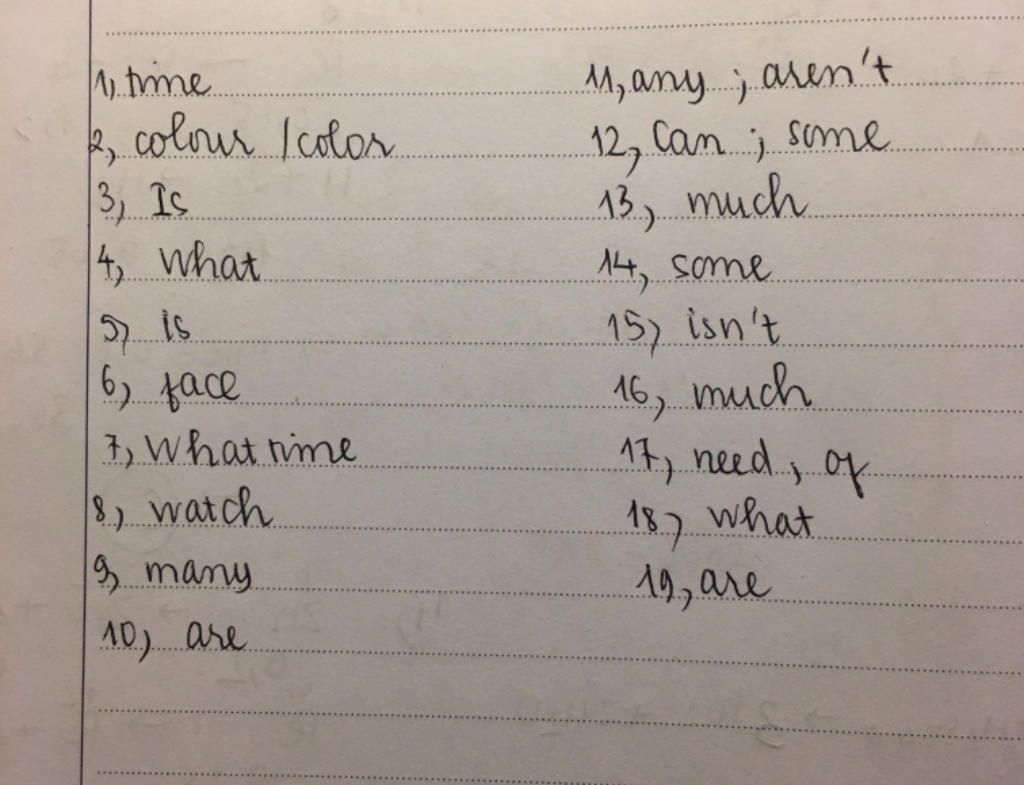 1, time
2, colour / color
3, Is
4, What
5, is
6, face
7, What time
8, watch
9, many
10, are
11, any ; aren't
12, Can ; some
13, much
14, some
15, isn't
16, much
17, need, of
18, What
19, are